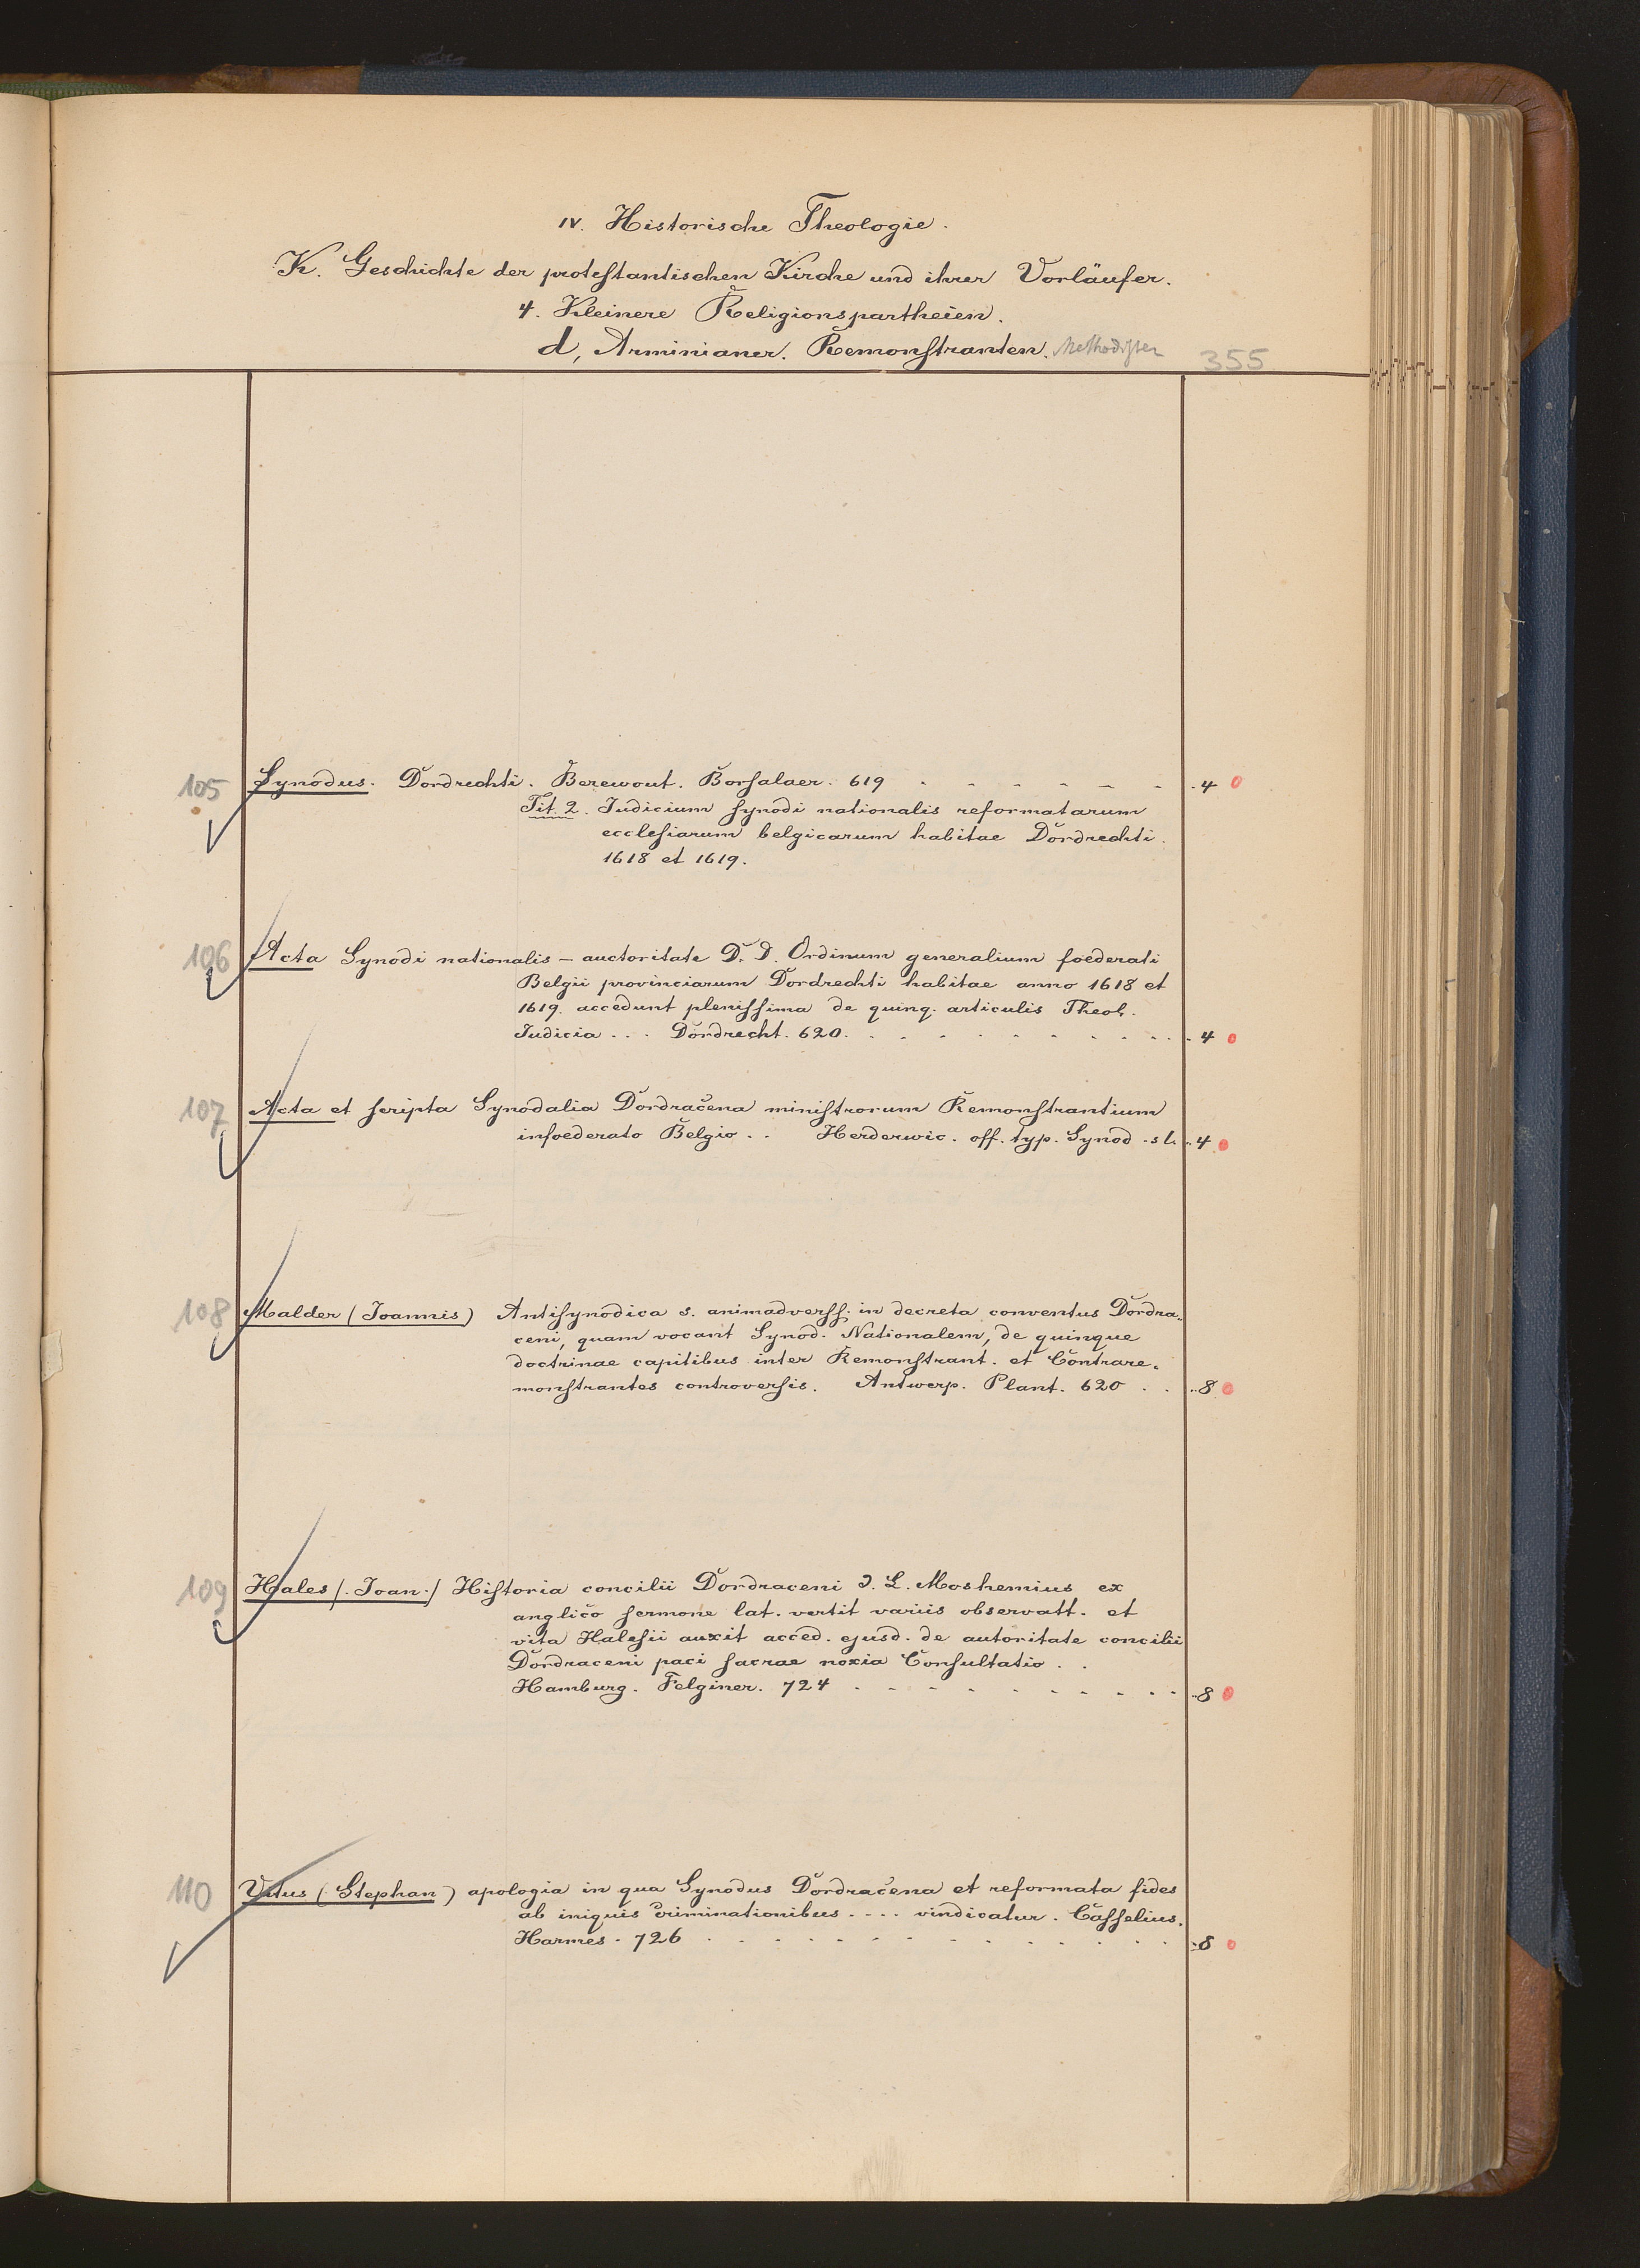 IV. Historische Theologie.
K. Geschichte der protestantischen Kirche und ihrer Vorläufer.
4. Kleinere Religionspartheien.
d, Arminianer. Remonstranten. Methodisten 355
105 Synodus. Dordrechti. Berewout. Borsalaer. 619 . - - - - - - . 4 0
Tit. 2. Iudicium synodi nationalis reformatarum
ecclesiarum belgicarum habitae Dordrechti.
1618 et 1619.
106 Acta Synodi nationalis – auctoritate D. D. Ordinum generalium foederati
Belgii provinciarum Dordrechti habitae anno 1618 et
1619. accedunt plenissima de quinq. articulis Theol.
Iudicia . . . Dordrecht. 620. . . . . . . . . . . 4 0
107 Acta et scripta Synodalia Dordracena ministrorum Remonstrantium
infoederato Belgio . . Herderwic. off. typ. Synod. s l. . 4 0
108 Malder (Joannis) Antisynodica s. animadverss. in decreta conventus Dordra-
ceni, quam vocant Synod. Nationalem, de quinque
doctrinae capitibus inter Remonstrant. et Contrare-
monstrantes controversis. Antwerp. Plant. 620 . . . . 8 0
109 Hales /. Joan./ Historia concilii Dordraceni J. L. Moshemius ex
anglico sermone lat. vertit variis observatt. et
vita Halesii auxit acced. ejusd. de autoritate concilii
Dordraceni paci sacrae noxia Consultatio . .
Hamburg. Felginer. 724 . . . . . . . . . . . 8 0
110 Vitus (Stephan) apologia in qua Synodus Dordracena et reformata fides
ab iniquis criminationibus . . . . vindicatur. Casselius.
Harmes. 726 . . . . . . . . . . . . . 8 0